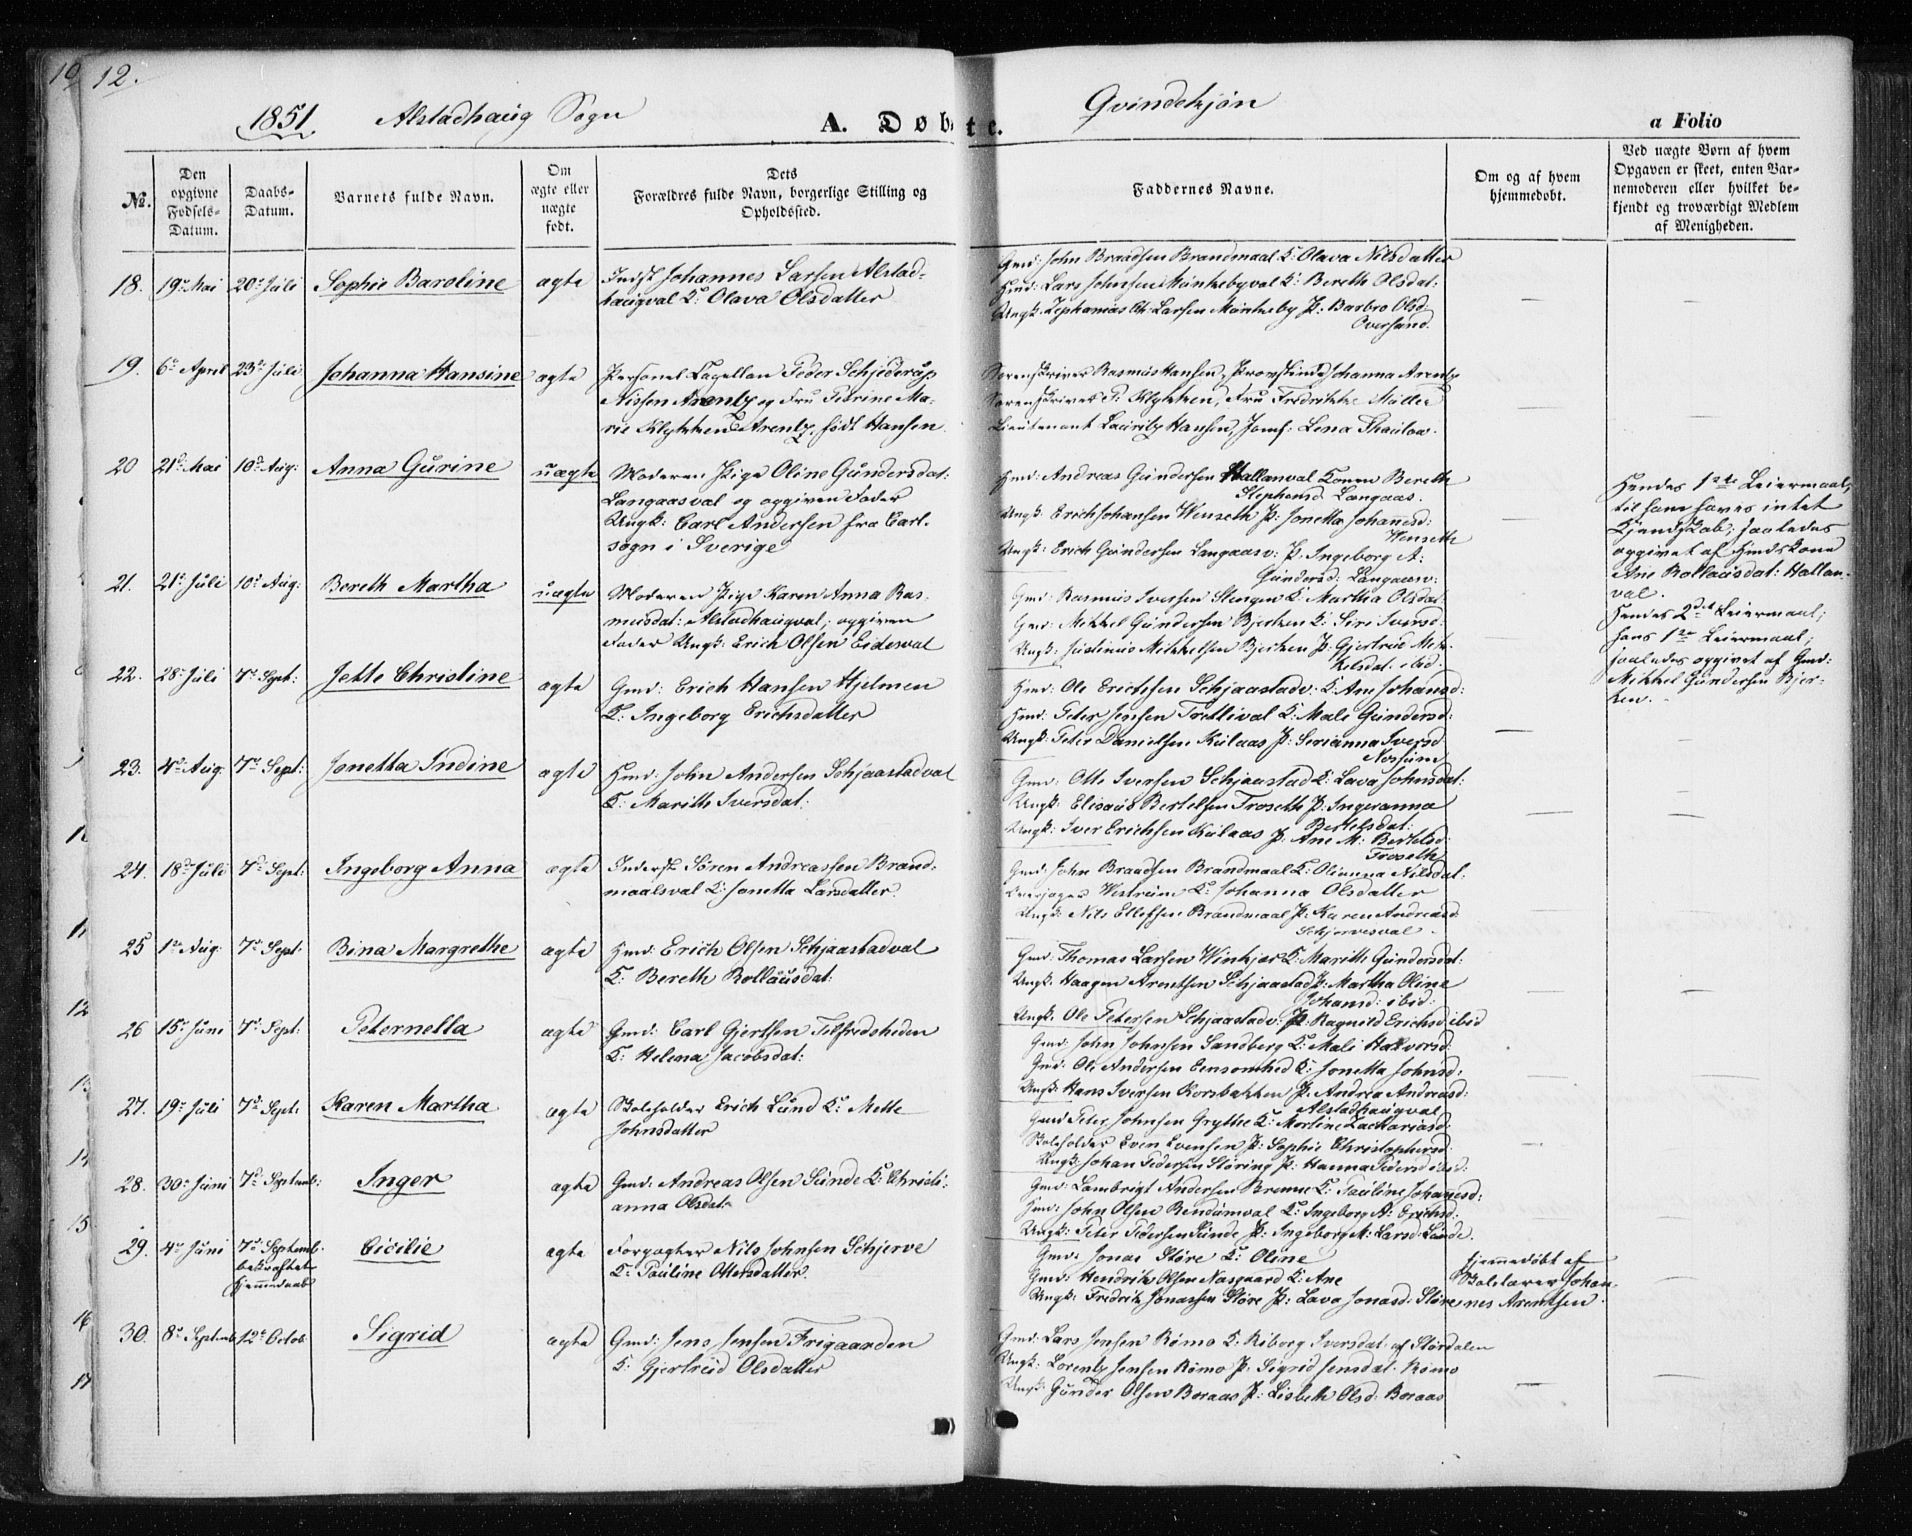 10 12.
1851 Alstadhaug Sogn A. Døbte. Qvindekjøn a Folio
№.
Den opgivne Fødsels-Datum.
Daabs-Datum.
Barnets fulde Navn.
Om ægte eller uægte født.
Dets Forældres fulde Navn, borgerlige Stilling og Opholdssted.
Faddernes Navne.
Om og af hvem hjemmedøbt.
Ved uægte Børn af hvem
Opgaven er skeet, enten Bar-
nemoderen eller hvilket be-
kjendt og troværdigt Medlem
af Menigheden.
18. 19de Mai 20de Juli Sophie Baroline ægte
Indst Johannes Larsen Alstad-
haugval K: Olava Olsdatter
Gmd: John Braadsen Brandmaal K: Olava Nilsdatter
Hmd: Lars Johnsen Munkebyval K: Bereth Olsdat:
Ungk: Zephanias Chr: Larsen Munkeby P: Barbro Olsd
Oversand.
— —
19. 6te April 23de Juli Johanna Hansine ægte
Personel Capellan Peder Schjederup
Nissen Arentz og Fru Petrine Ma-
rie Klykken Arentz, født Hansen.
Sorenskriver Rasmus Hansen, Provstinde Johanna Arentz
Sorenskriver P. Klykken, Fru Fredrikke Müller
Lieutenant Lauritz Hansen, Jomf: Lena Thaulow.
— —
20 21de Mai 10de Aug: Anna Gurine uægte
Moderen Pige Oline Gundersdat:
Langaasval og opgiven Fader
Ungk: Carl Andersen fra Carl-
sogn i Sverige
Hmd: Andreas Gundersen Hallanval Konen Bereth
Stephensd. Langaas.
Ungk: Erich Johansen Wenseth P: Jonetta Johannesd:
Wenseth
Ungk: Erich Gundersen Langaasv: P: Ingeborg A:
Gundersd: Langaasv:
Hendes 1ste Leiermaal;
til ham haves intet
Kjendskab; saaledes
opgivet af Hmdskone
Ane Rollausdat: Hallan-
val.
21. 21de Juli 10de Aug: Bereth Martha uægte
Moderen Pige Karen Anna Ras-
musdat: Alstadhaugval; opgiven
Fader Ungk: Erich Olsen Eidesval
Gmd: Rasmus Iversen Stengen K: Martha Olsdat
Gmd: Mikkel Gundersen Bjerken K: Siri Iversd:
Ungk: Justinus Mikkelsen Bjerken P: Gjertrud Mik-
kelsdat: ibid:
Hendes 2det Leiermaal;
hans 1ste Leiermaal;
saaledes opgivet af Gmd:
Mikkel Gundersen Bjer-
ken.
22. 28de Juli 7de Sept: Jette Christine ægte
Gmd: Erich Hansen Hjelmen
K: Ingeborg Erichsdatter
Hmd: Ole Erichsen Schjaastadv: K: Ane Johansd:
Hmd: Peter Jensen Trettival K: Mali Gundersd:
Ungk: Peter Danielsen Kulaas P: Serianna Iversd
Nossum
— —
23. 4de Aug: 7de Sept: Jonetta Indine ægte
Hmd: John Andersen Schjaastadval
K: Marith Iversdat:
Gmd: Otte Iversen Schjaastad K: Lava Johnsdat:
Ungk: Elisæus Bertelsen Troseth P: Ingeranna
Bertelsdat:
Ungk: Iver Erichsen Kulaas P: Ane M: Bertelsd:
Troseth
— —
24. 18de Juli 7de Sept: Ingeborg Anna ægte
Inderst Sören Andreassen Brand-
maalsval K: Jonetta Larsdatter.
Gmd: John Braadsen Brandmaal K: Olianna Nilsdat:
Westrum K: Johanna Olsdatter
Ungk: Nils Ellefsen Brandmaal P: Karen Andreasd:
Schjervesval.
— —
25 1ste Aug: 7de Sept: Bina Margrethe ægte
Hmd: Erich Olsen Schjaastadval
K: Bereth Rollausdat:
Gmd: Thomas Larsen Winkjær K: Marith Gundersdat:
Ungk: Haagen Arentsen Schjaastad P: Martha Oline
Johansd: ibid:
Ungk: Ole Petersen Schjaastadv: P: Ragnild Erichsd ibid
— —
26 15de Juni 7de Sept: Peternella ægte
Gmd: Carl Gjertsen Tilfredsheden
K: Helena Jacobsdat:
Gmd: John Johnsen Sandberg K: Mali Halvorsd:
Gmd: Ole Andersen Eensomhed K: Jonetta Johnsd:
Ungk: Hans Iversen Korsbakken P: Andrea Andreasd:
Alstadhaugval
— —
27. 19de Juli 7de Sept: Karen Martha ægte
Skoleholder Erich Lund K: Mette
Johnsdatter
Gmd: Peter Johnsen Grythe K: Mortine Zachariasd:
Skoleholder Even Evensen P: Sophie Christophersd:
Ungk: Johan Pedersen Støring P: Hanna Pedersd ibid:
— —
28. 30te Juni 7de Septemb: Inger ægte
Gmd: Andreas Olsen Sunde K: Christi-
anna Olsdat:
Gmd: Lambrigt Andersen Bremme K: Pauline Johannesd:
Hmd: John Olsen Rendumval K: Ingeborg A: Erichsd:
Ungk: Peter Pedersen Sunde P: Ingeborg M: Larsd: Lunde.
— —
29. 4de Juni 7de Septemb.
bekræftet
Hjemmedaab Cicilie ægte
Forpagter Nils Johnsen Schjerve
K: Pauline Ottersdatter.
Gmd: Jonas Støre K: Oline
Gmd: Hendrik Olsen Nasgaard K: Ane
Ungk: Fredrik Jonassen Støre P: Lava Jonasd: Støre
Hjemmedøbt af
Skolelærer Johan-
nes Arentsen.
30. 8de Septemb 12te Octob: Sigrid ægte
Gmd: Jens Jensen Frigaarden
K: Gjertrud Olsdatter
Gmd: Lars Jensen Rømo K: Riborg Iversdat: af Størdalen
Ungk: Lorentz Jensen Rømo P: Sigrid Jensdat: Rømo
Ungk: Gunder Olsen Boraas P: Lisbeth Olsd: Boraas
— —